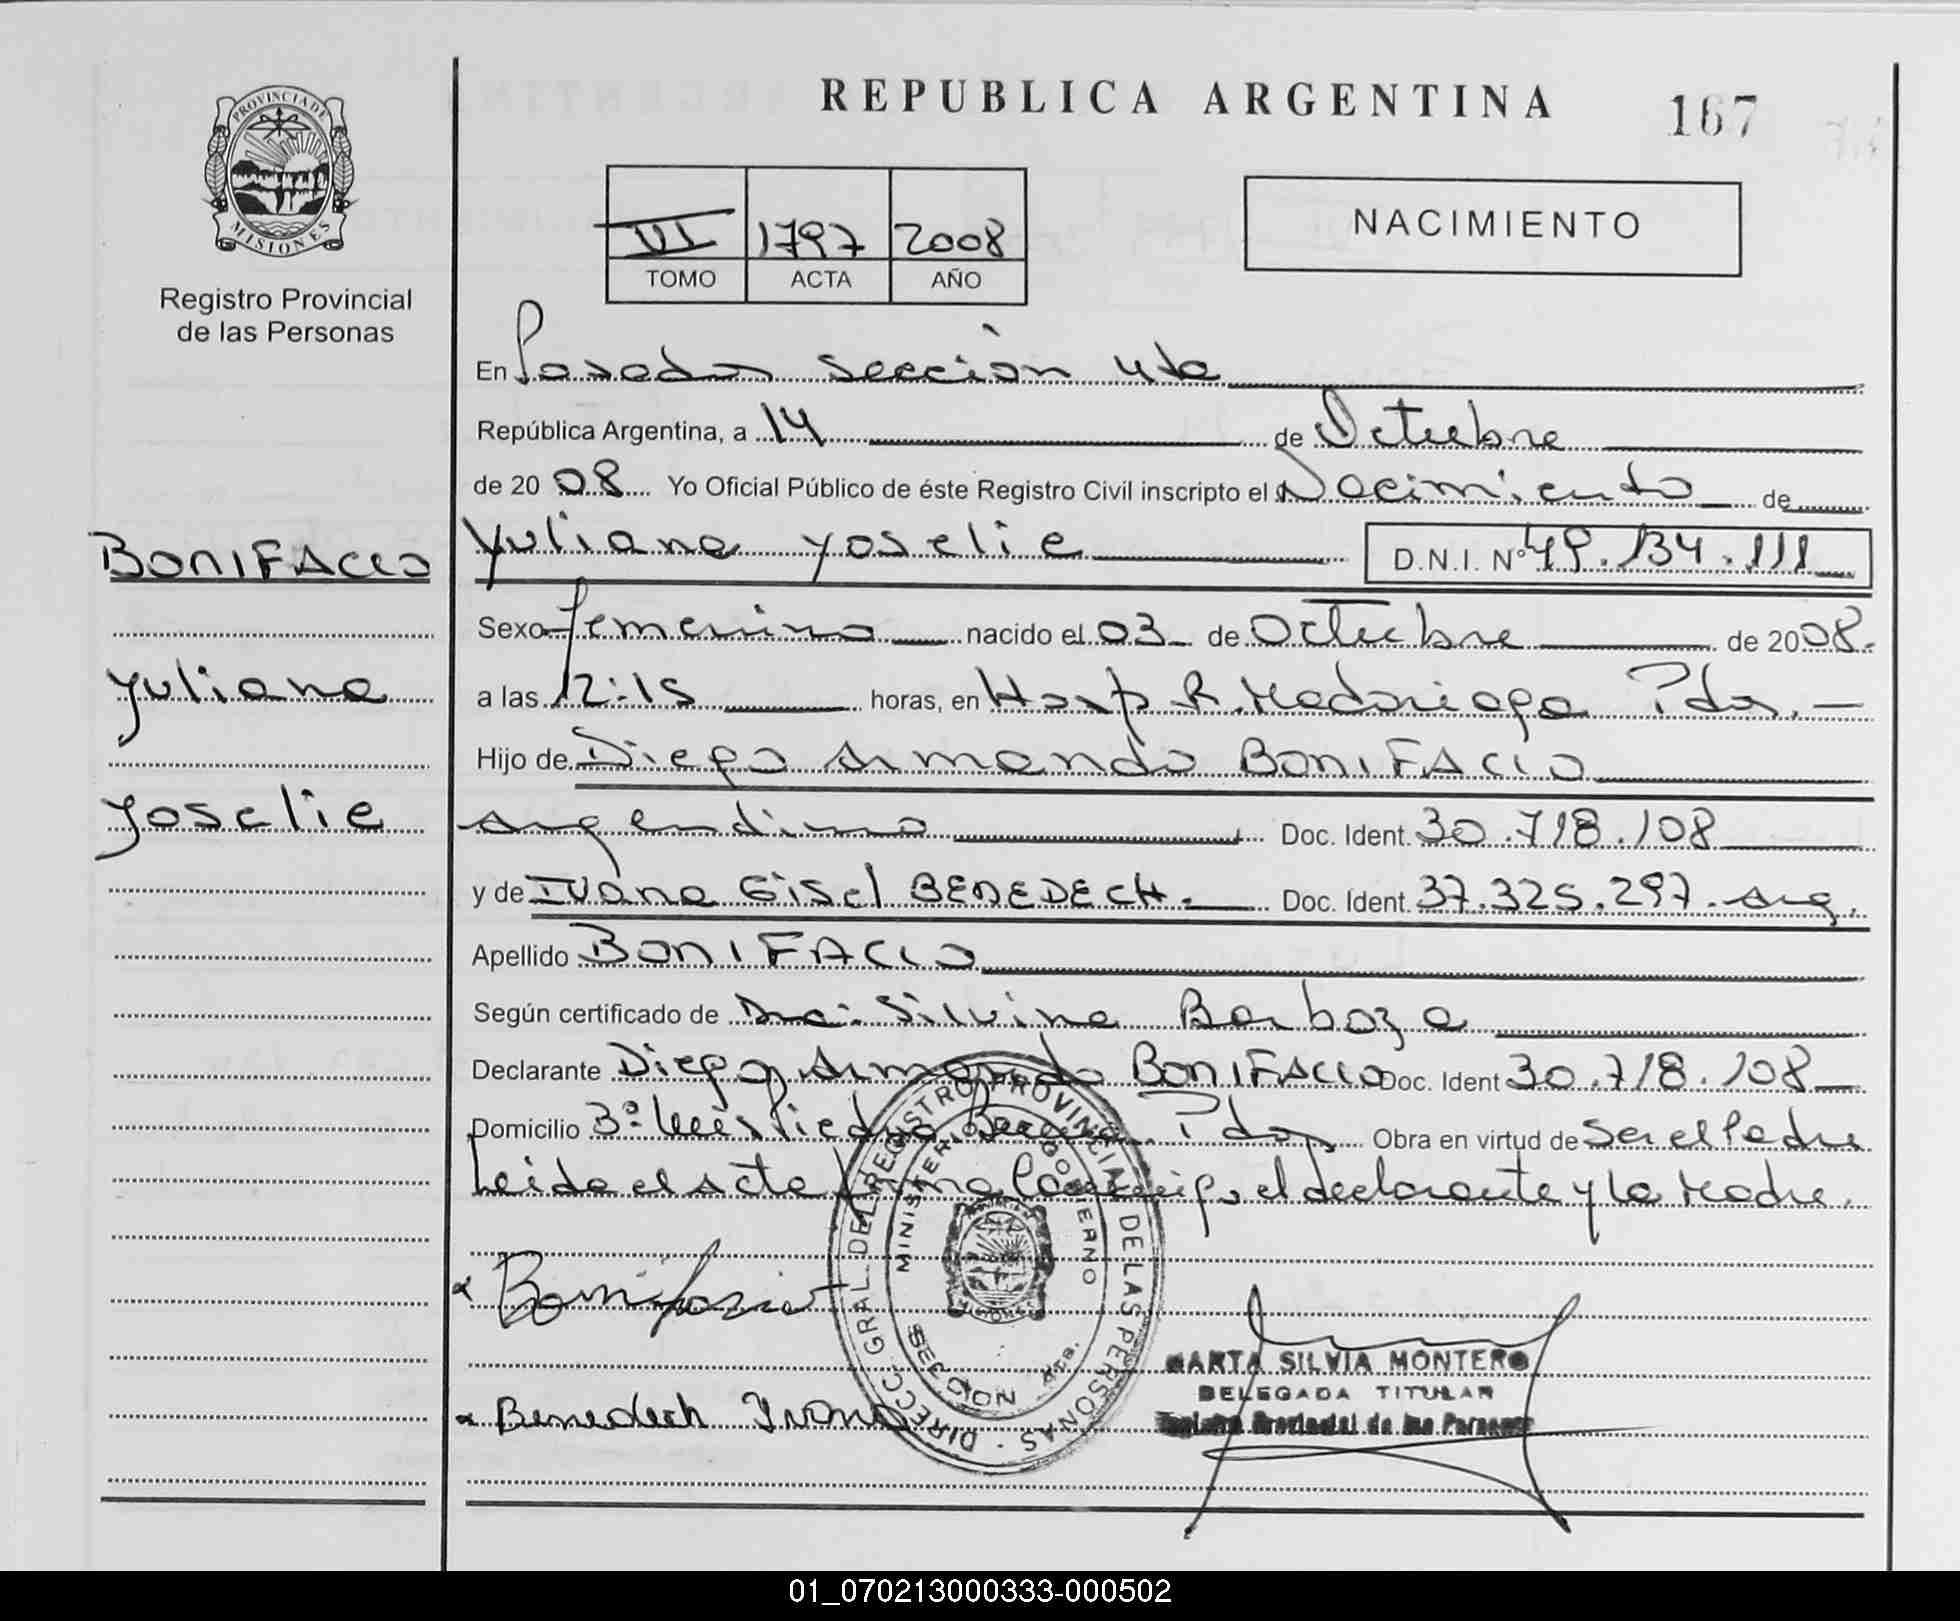 REPUBLICA ARGENTINA
167
PROVINCIA DE
MISIONES
Registro Provincial
de las Personas
NACIMIENTO
VI 1797 2008
TOMO ACTA AÑO
En Posadas Sección 4ta
República Argentina, a 14 de Octubre
de 2008 Yo Oficial Público de éste Registro Civil inscripto el Nacimiento de
BONIFACIO
Yuliana Yoselie D.N.I. Nº 49.134.111
Sexo femenino nacido el 03 de Octubre de 2008.
Yuliana
a las 12:15 horas, en Hosp R. Madariaga Pdas.-
Hijo de Diego Armando BONIFACIO
Yoselie
Argentino Doc. Ident. 30.718.108
y de IVANA GISEL BENEDECH.- Doc. Ident. 37.325.297. Arg.
Apellido BONIFACIO
Según certificado de Dra: Silvina Barboza
Declarante Diego Armando BONIFACIO Doc. Ident 30.718.108
Domicilio Pdas Obra en virtud de Ser el Padre
Leida el Acta Firma Conmigo, el declarante y la Madre.
DIRECC. GRAL. DEL REGISTRO PROVINCIAL DE LAS PERSONAS
MINISTERIO GOBIERNO
SECCION 4ta.
Bonifacio
Benedech Ivana
MARTA SILVIA MONTERO
DELEGADA TITULAR
Registro Provincial de las Personas
01_070213000333-000502